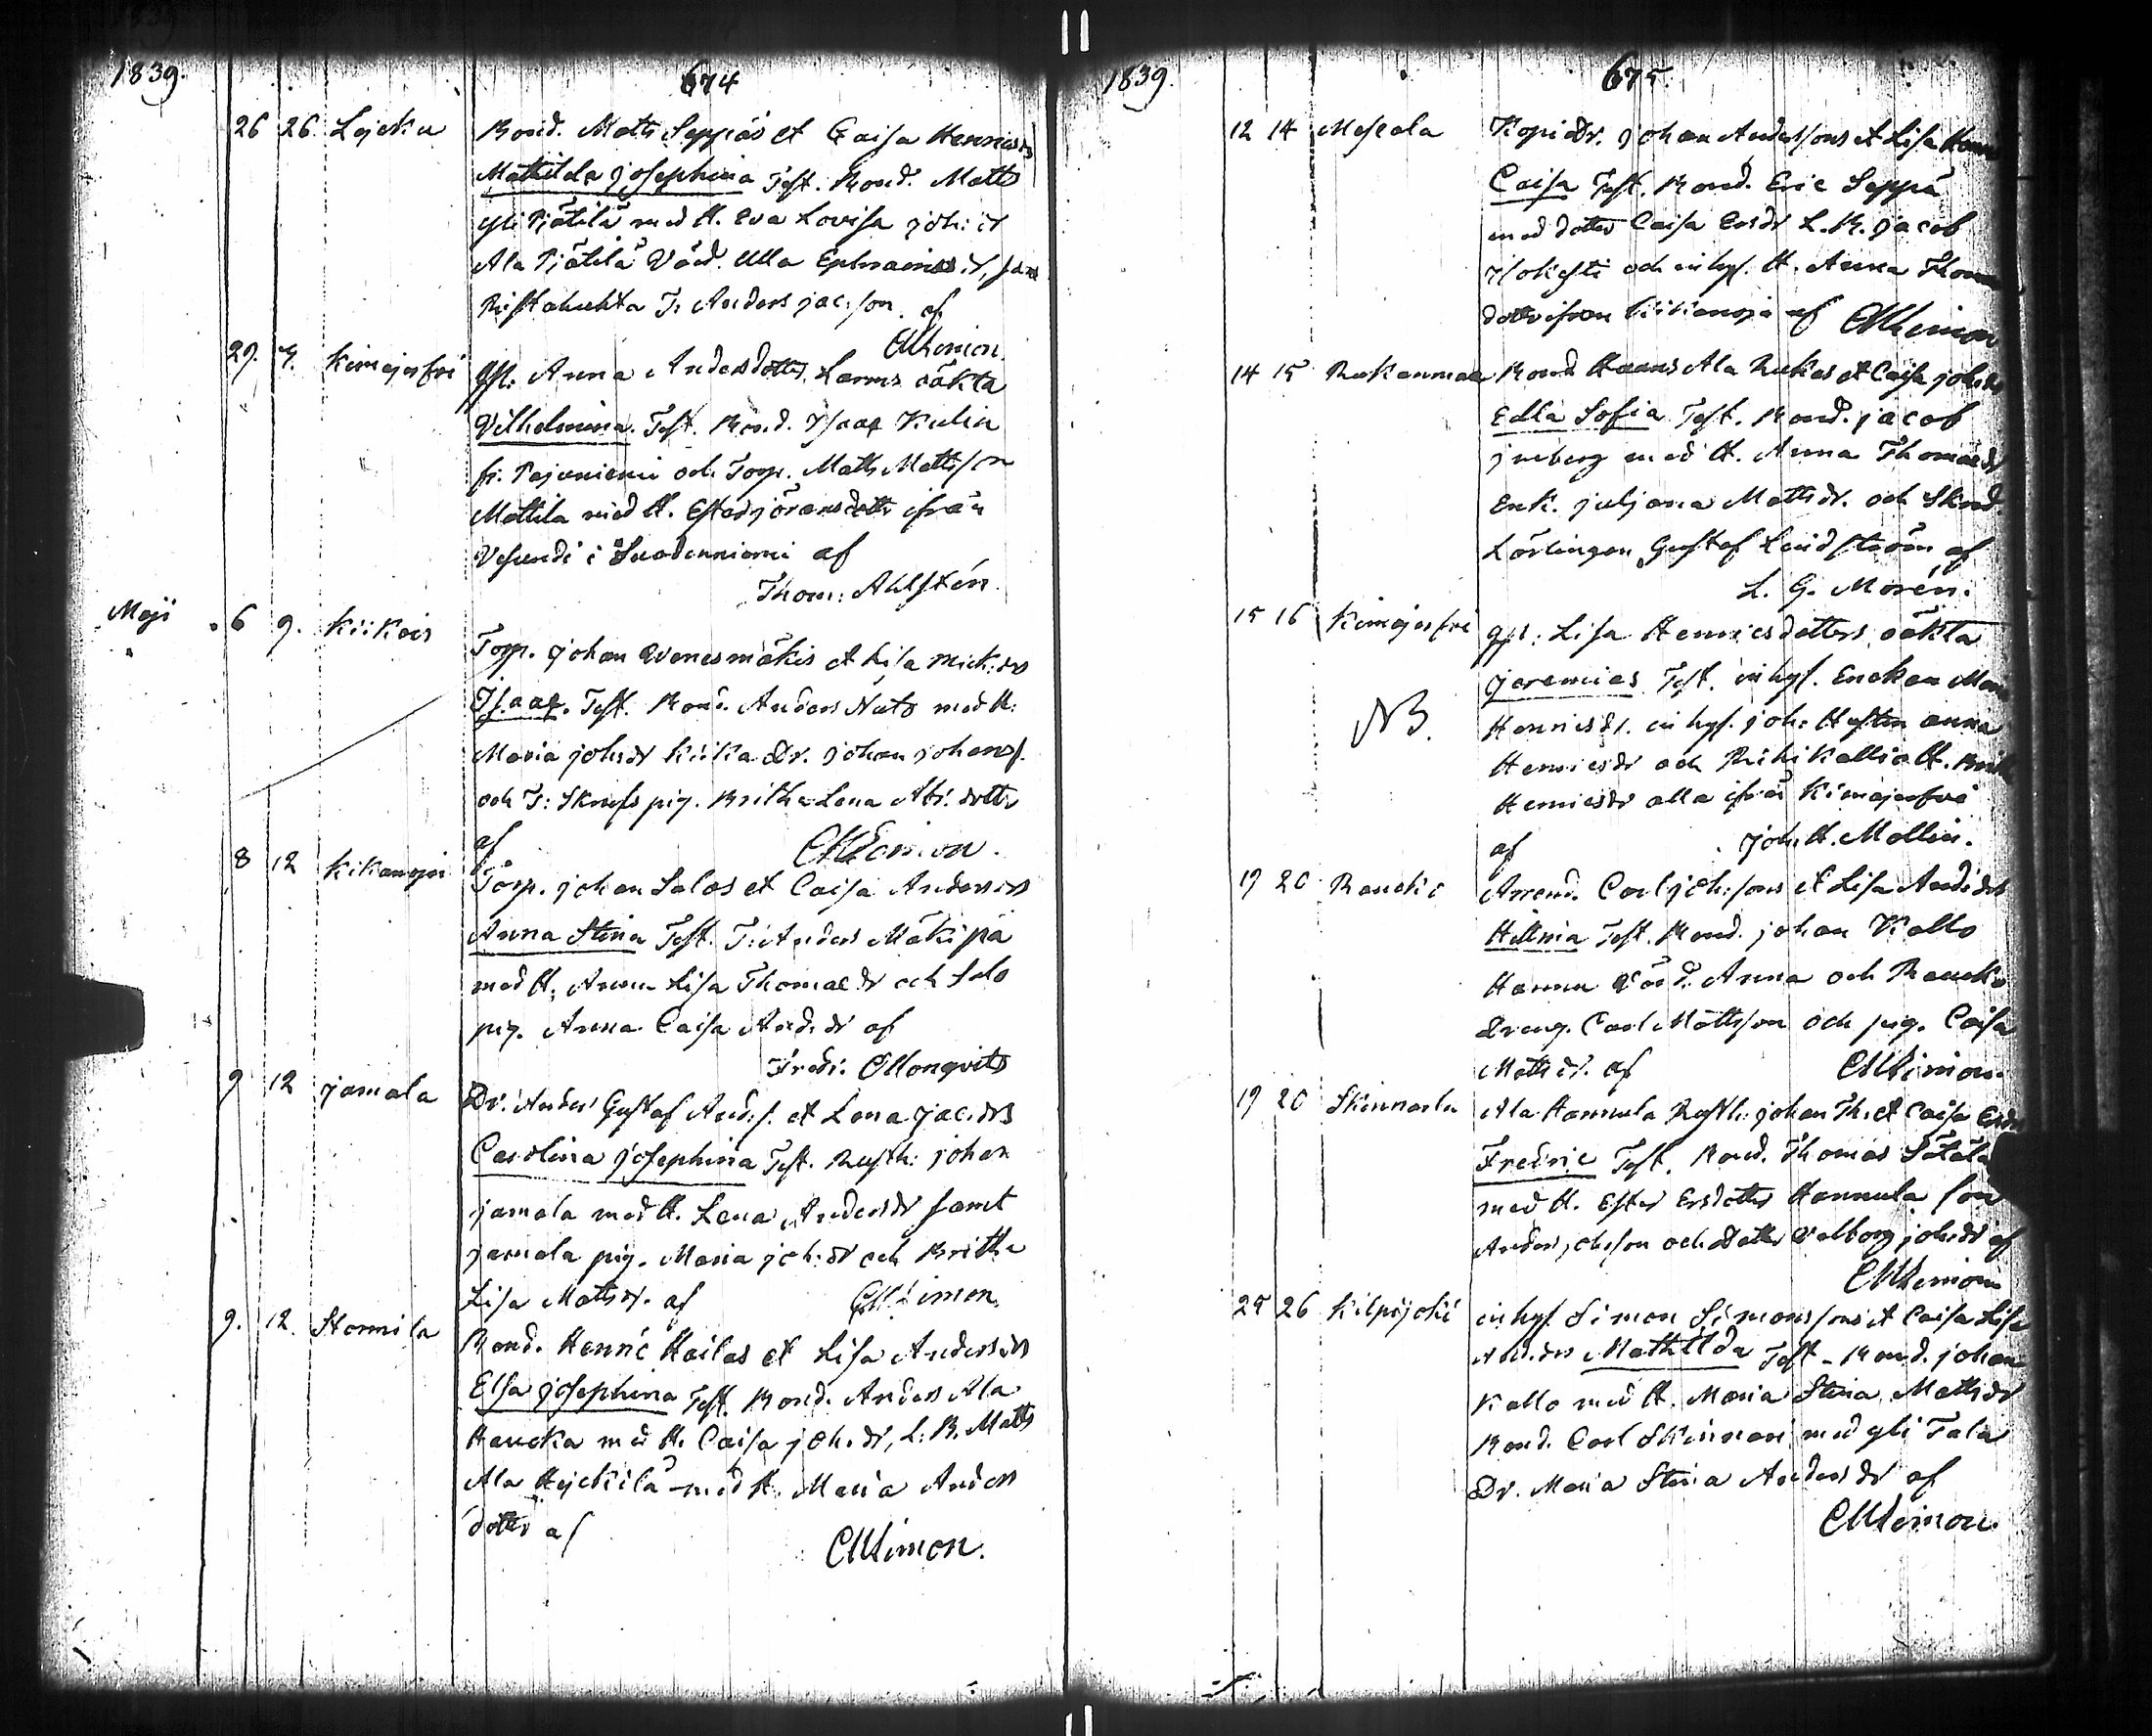 1839.
674
26 26 Lejcku Bond. Matts Seppäs et Caisa Henricsdrs
Mathilda Josephina Test. Bond. Matts
Yli Pjätilä med H. Eva Lovisa Joh: dr
Ala Pjätilä Värd. Ulla Ephraimsdr, samt
Ristahuhta T: Anders Jac:son af
CMLimon.
29. Kimajerfvi Qp: Anna Andersdotters Lanns oäkta
Vilhelmina. Test. Bond. Isaac Kulin
fr. Pajuniemi och Torp. Matts Mattsson
Mattila med H. Ester Göransdotter ifrån
Vesundi i Suodenniemi af
Thom: Ahlstén.
Maji 6 9. Kiikois Torp. Johan Wanesmäkis et Lisa Mick:drs
Isaac. Test. Bond. Anders Nuto med H:
Maria Johsdr Kiika Dr. Johan Johans.
och T: Skrefs pig. Britha Lena Abr. dotter
af CMLimon.
8 12 Kikanoja Torp. Johan Salos et Caisa Andersdrs
Anna Stina Test. T: Anders Mäkipä
med H. Anna Lisa Thomaedr och Salo
pig. Anna Caisa And:dr af
Fredr: Ollonqvist
9 12 Jamala Dr. Anders Gustaf And:s. et Lena Jac:drs
Carolina Josephina Test. Rusth: Johan
Jamala med H. Lena Andersdr samt
Jamala pig. Maria Joh:dr och Britha
Lisa Matsdr. af CMLimon.
9. 12. Stormila Bond. Henric Hailas et Lisa Andersdrs
Elsa Josephina Test. Bond. Anders Ala
Haucka med H. Caisa Joh:dr, L: B. Matts
Ala Hejckilä med H. Maria Anders
dotter af CMLimon.
1839.
675.
12 14 Mescala Kopia Dr. Johan Anderssons et Lisa
Caisa Test. Bond. Eric Seppä
med dotter Caisa Ersdr L. B. Jacob
Isokesti och inhys. H. Anna
dotter ifrån Kikanoja af CMLimon
14 15 Ruokanmaa Bond Haans Ala Ruckas et Caisa Johsdrs
Edla Sofia Test. Bond. Jacob
Juberg med H. Anna Thomaedr
Enk. Juljana Mattsdr. och Skrad
Lärlingen Gustaf Lindström af
L. G. Morén.
15 16 Kimajerfvi Qp: Lisa Henricsdotters oäkta
Jeremias Test. inhys. Enckan
NB. Henricsdr. inhys. Joh: Hustru Anna
Henricsdr och Rihikallio H.
Henricsdr alla ifrån Kimajerfvi
af Joh: H. Mollin.
19 20 Raucko Arrend. Carl Joh:sons et Lisa And:drs
Hillma Test. Bond. Johan Kallo
Hannu Värd. Anna och Raucko
Dreng. Carl Mattsson och pig. Caisa
Mattsdr. af CMLimon.
19 20 Skinnarla Ala Hannula Rusth: Johan Th: et Caisa
Fredric Test. Bond. Thomas Sätälä
med H. Ester Ersdotter Hannula son
Anders Johsson och dotter Valborg Johsdr af
CMLimon
25 26 Kilpijoki inhys Simon Simonssons et Caisa Lisa
And:drs Mathilda Test. Bond. Johan
Kallo med H. Maria Stina Mattsdr
Bond. Carl Skinnari med Yli Tala
Dr. Maria Stina Andersdr af
CMLimon.